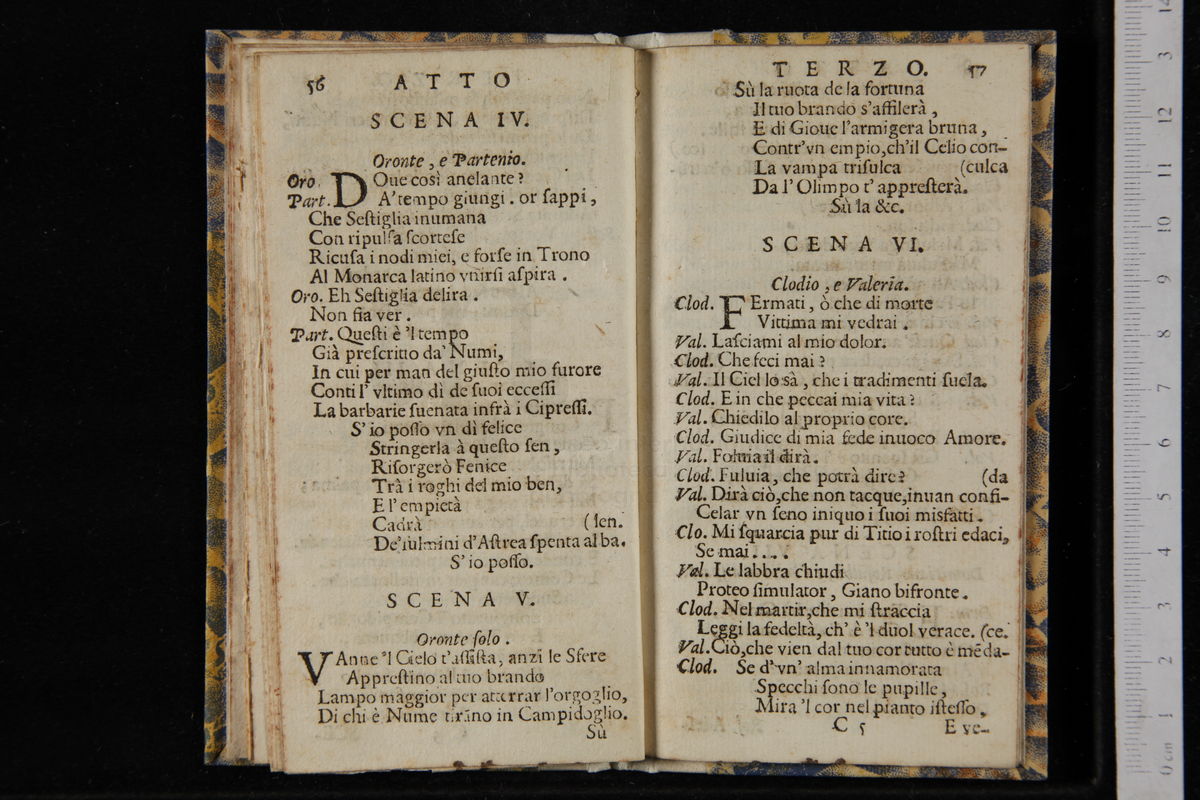 56 ATTO
SCENA IV.
Oronte, e Partenio.
Oro. DOue così anelante?
Part. A' tempo giungi. or sappi,
Che Sestiglia inumana
Con ripulsa scortese
Ricusa i nodi miei, e forse in Trono
Al Monarca latino vnirsi aspira.
Oro. Eh Sestiglia delira.
Non fia ver.
Part. Questi è 'l tempo
Già prescritto da' Numi,
In cui per man del giusto mio furore
Conti l' vltimo dì de suoi eccessi
La barbarie suenata infrà i Cipressi.
S' io posso vn dì felice
Stringerla à questo sen,
Risorgerò Fenice
Trà i roghi del mio ben,
E l' empietà
Cadrà (len.
De' fulmini d'Astrea spenta al ba.
S' io posso.
SCENA V.
Oronte solo.
VAnne 'l Cielo t'assista, anzi le Sfere
Apprestino al tuo brando
Lampo maggior per atterrar l'orgoglio,
Di chi è Nume tiranno in Campidoglio.
Sù
TERZO. 57
Sù la ruota de la fortuna
Il tuo brando s'affilerà,
E di Gioue l'armigera bruna,
Contr'vn empio, ch'il Celio con-
La vampa trisulca (culca
Da l' Olimpo t' appresterà.
Sù la &c.
SCENA VI.
Clodio, e Valeria.
Clod. FErmati, ò che di morte
Vittima mi vedrai.
Val. Lasciami al mio dolor.
Clod. Che feci mai?
Val. Il Ciel lo sà, che i tradimenti suela.
Clod. E in che peccai mia vita?
Val. Chiedilo al proprio core.
Clod. Giudice di mia fede inuoco Amore.
Val. Foluia il dirà.
Clod. Fuluia, che potrà dire? (da
Val. Dirà ciò, che non tacque, inuan confi-
Celar vn seno iniquo i suoi misfatti.
Clo. Mi squarcia pur di Titio i rostri edaci,
Se mai....
Val. Le labbra chiudi
Proteo simulator, Giano bifronte.
Clod. Nel martir, che mi straccia
Leggi la fedeltà, ch' è 'l duol verace. (ce.
Val. Ciò, che vien dal tuo cor tutto è mēda-
Clod. Se d' vn' alma innamorata
Specchi sono le pupille,
Mira 'l cor nel pianto istesso,
C 5 E ve-
14
3
13
12
11
10
9
8
7
6
5
4
3
2
1
0 cm